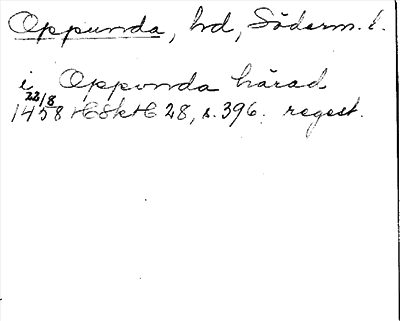 Oppunda, hd, Söderm. l.
i Oppvnda härad
22/8
1458 HSkH 28, s. 396. regest.